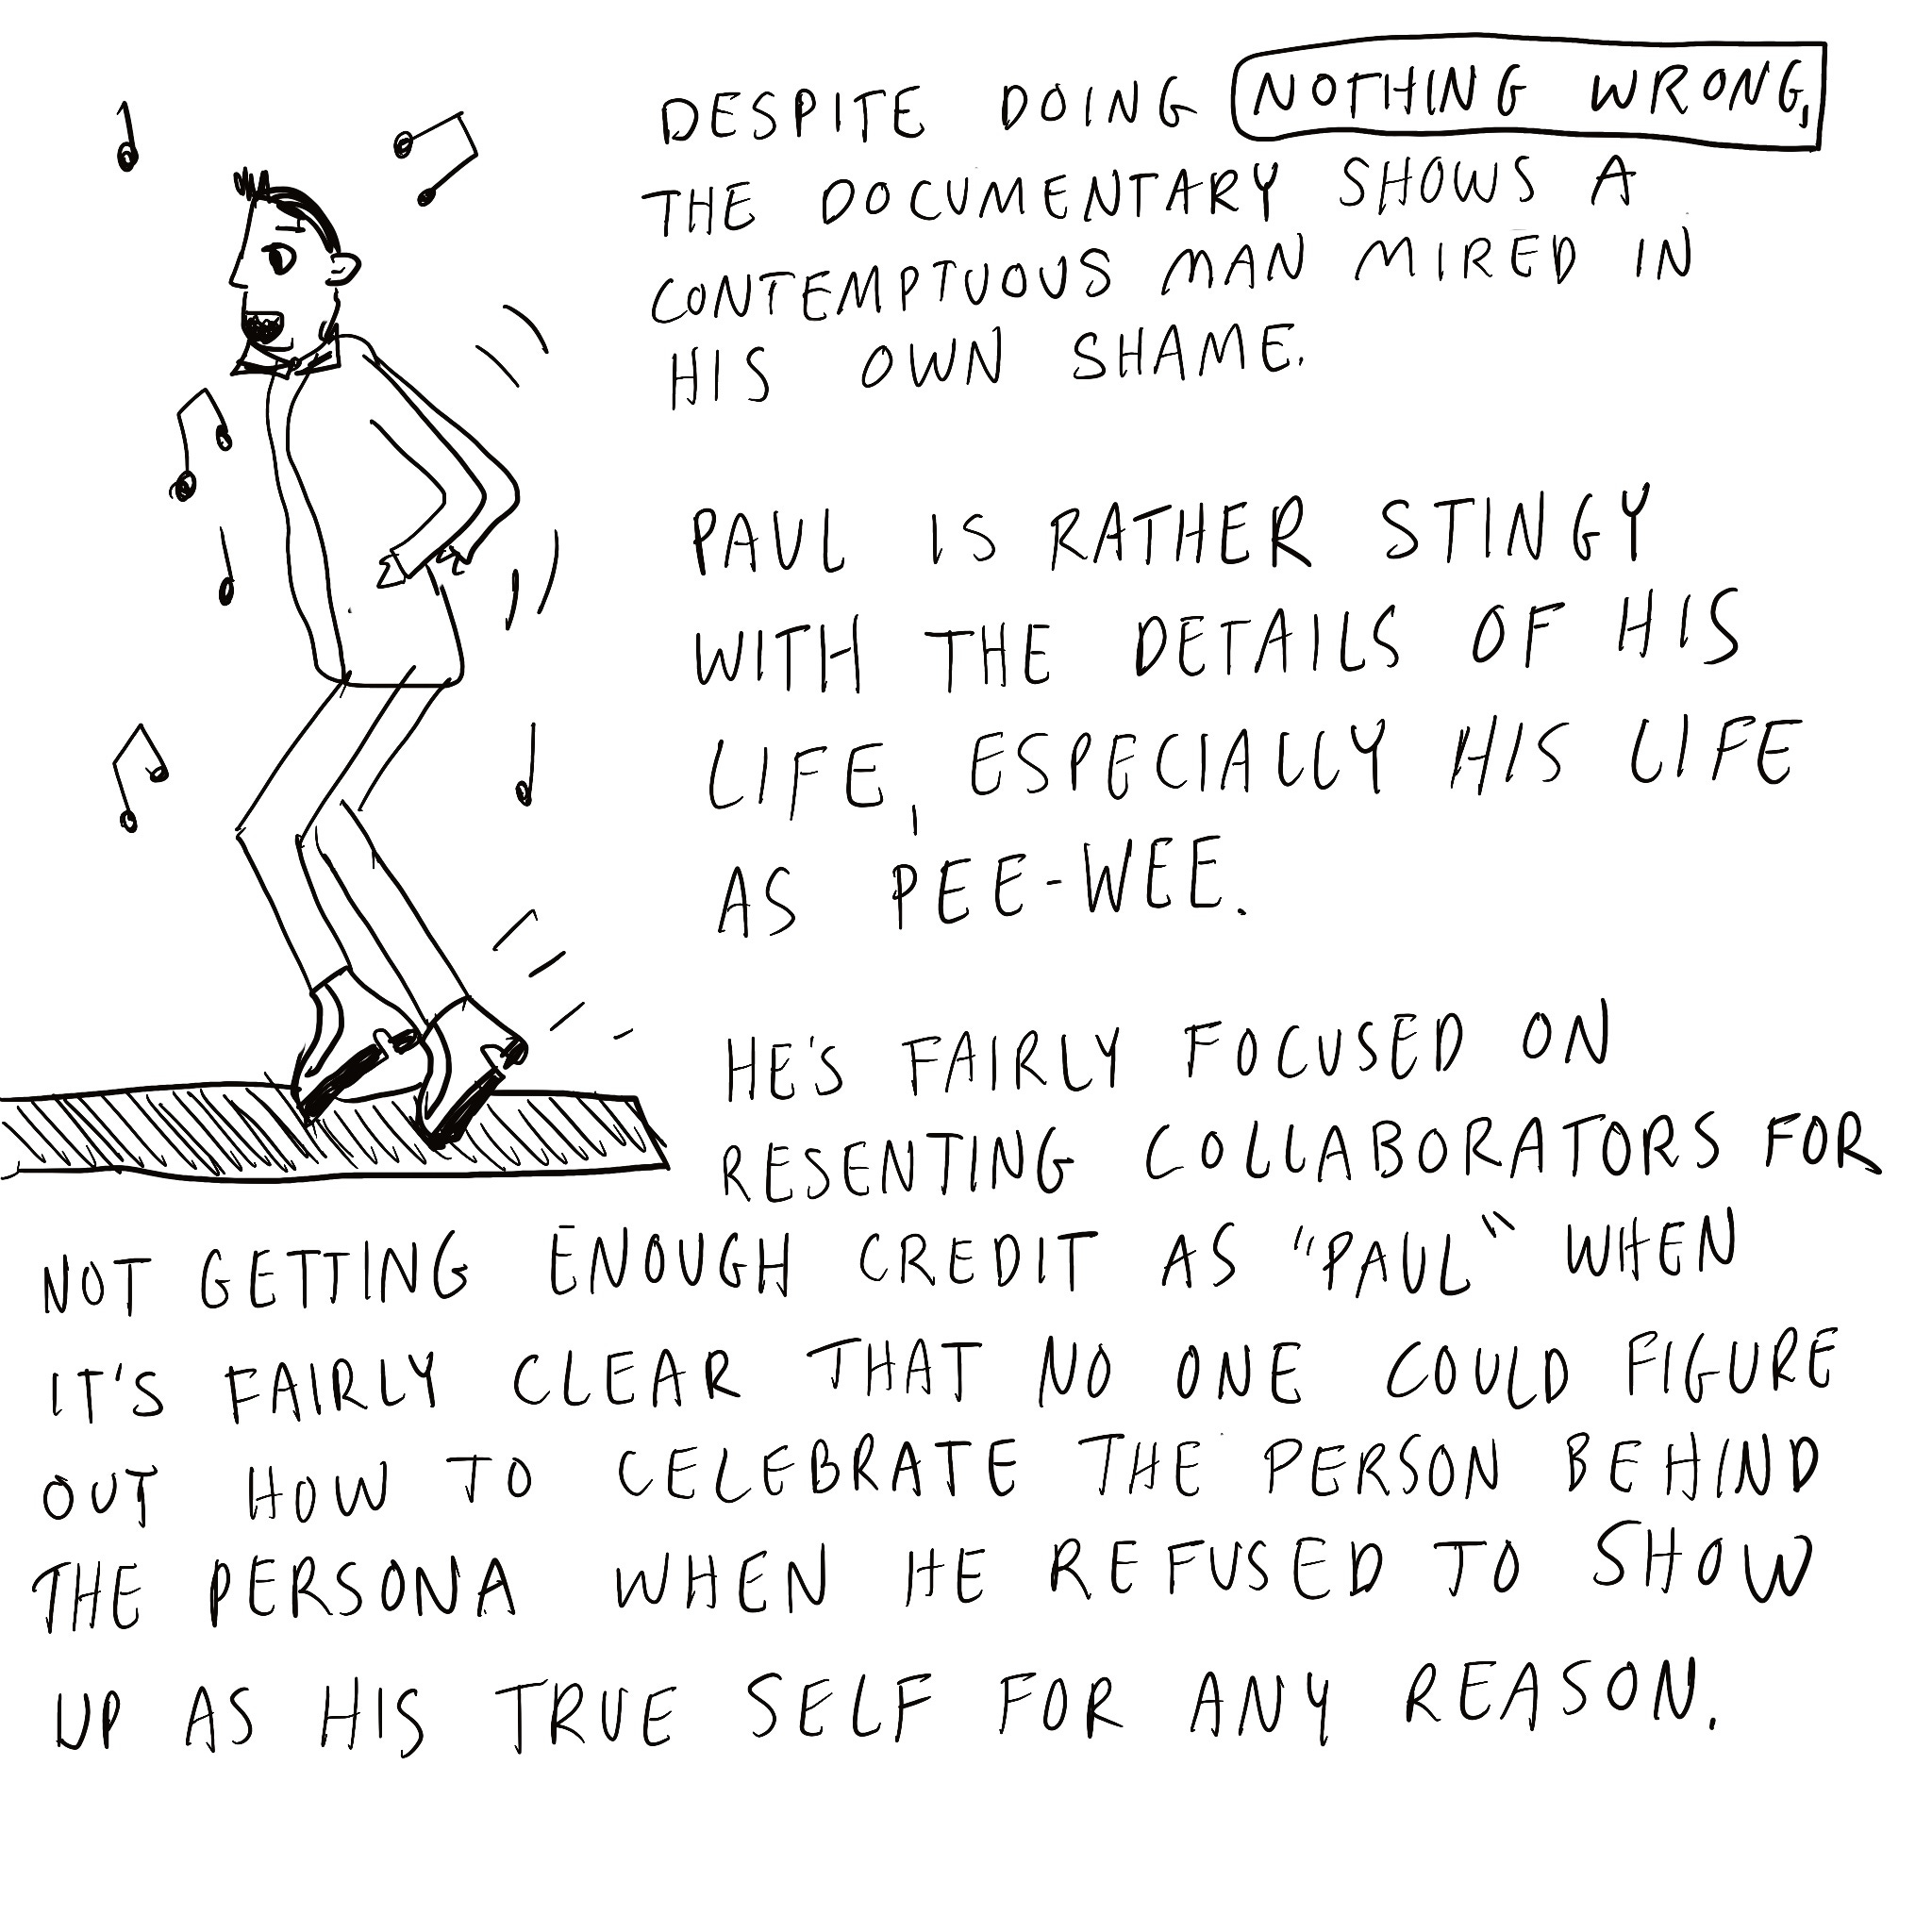 DESPITE DOING NOTHING WRONG,
THE DOCUMENTARY SHOWS A
CONTEMPTUOUS MAN MIRED IN
HIS OWN SHAME.
PAUL IS RATHER STINGY
WITH THE DETAILS OF HIS
LIFE, ESPECIALLY HIS LIFE
AS PEE-WEE.
HE'S FAIRLY FOCUSED ON
RESENTING COLLABORATORS FOR
NOT GETTING ENOUGH CREDIT AS "PAUL" WHEN
IT'S FAIRLY CLEAR THAT NO ONE COULD FIGURE
OUT HOW TO CELEBRATE THE PERSON BEHIND
THE PERSONA WHEN HE REFUSED TO SHOW
UP AS HIS TRUE SELF FOR ANY REASON.